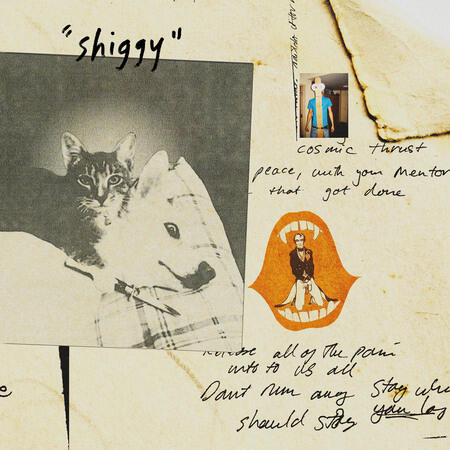 "shiggy"
cosmic thrust
peace, with your mentor
that got done
all of the pain
into to us all
Dont run away Stay
should stay you